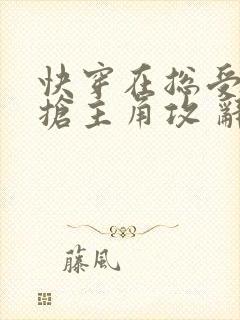 快穿在總受
搶主角攻
藤風